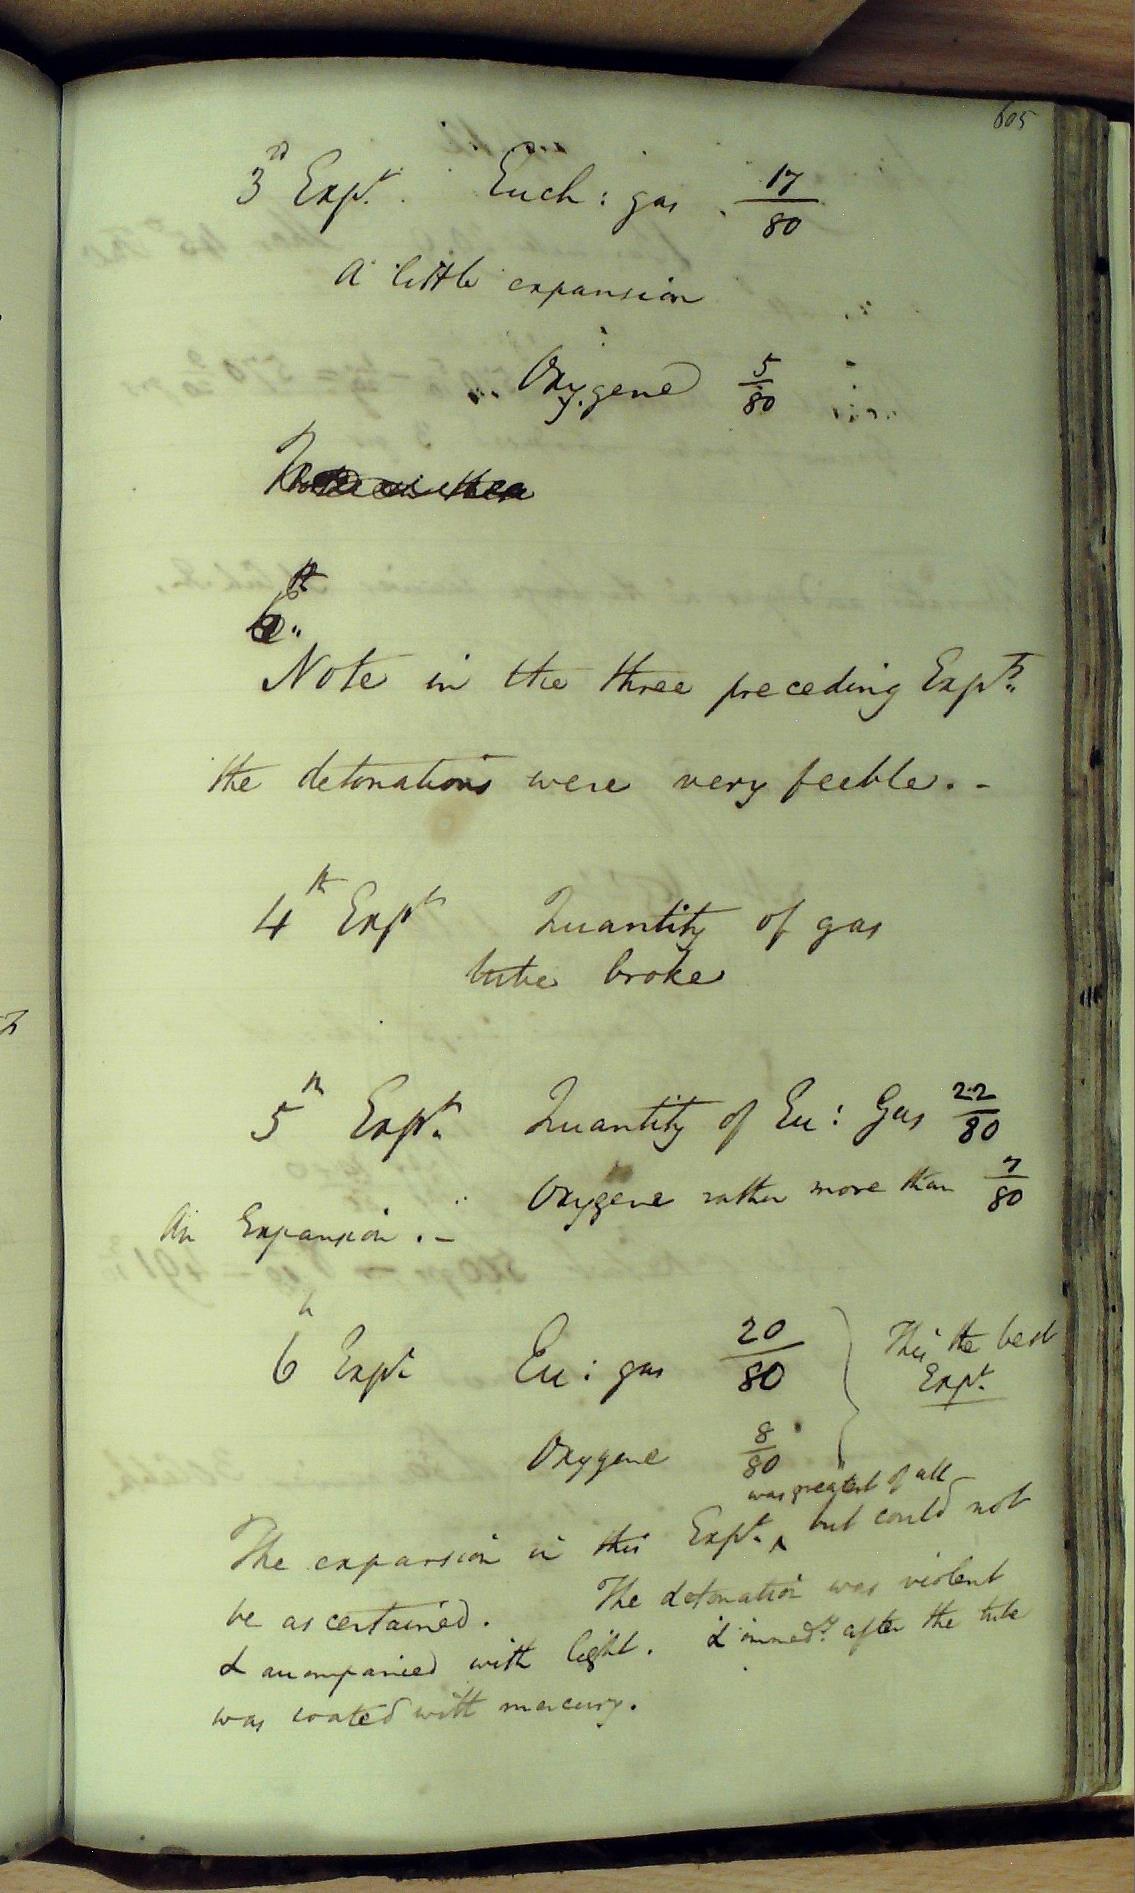 605
3d Expt. Euch: gas 17/80
A little expansion
Oxygene 5/80
Note in the three preceding Expts.
the detonations were very feeble. -
4th Expt Quantity of gas
tube broke
5th Expt. Quantity of Eu: Gas 22/80
Oxygene rather more than 7/80
An Expansion. -
6th Expt. Eu: gas 20/80
This the best
Expt.
Oxygene 8/80
was greatest of all
The expansion in this Expt. ^ but could not
be ascertained. The detonation was violent
& accompanied with light. & immedy. after the tube
was coated with mercury.